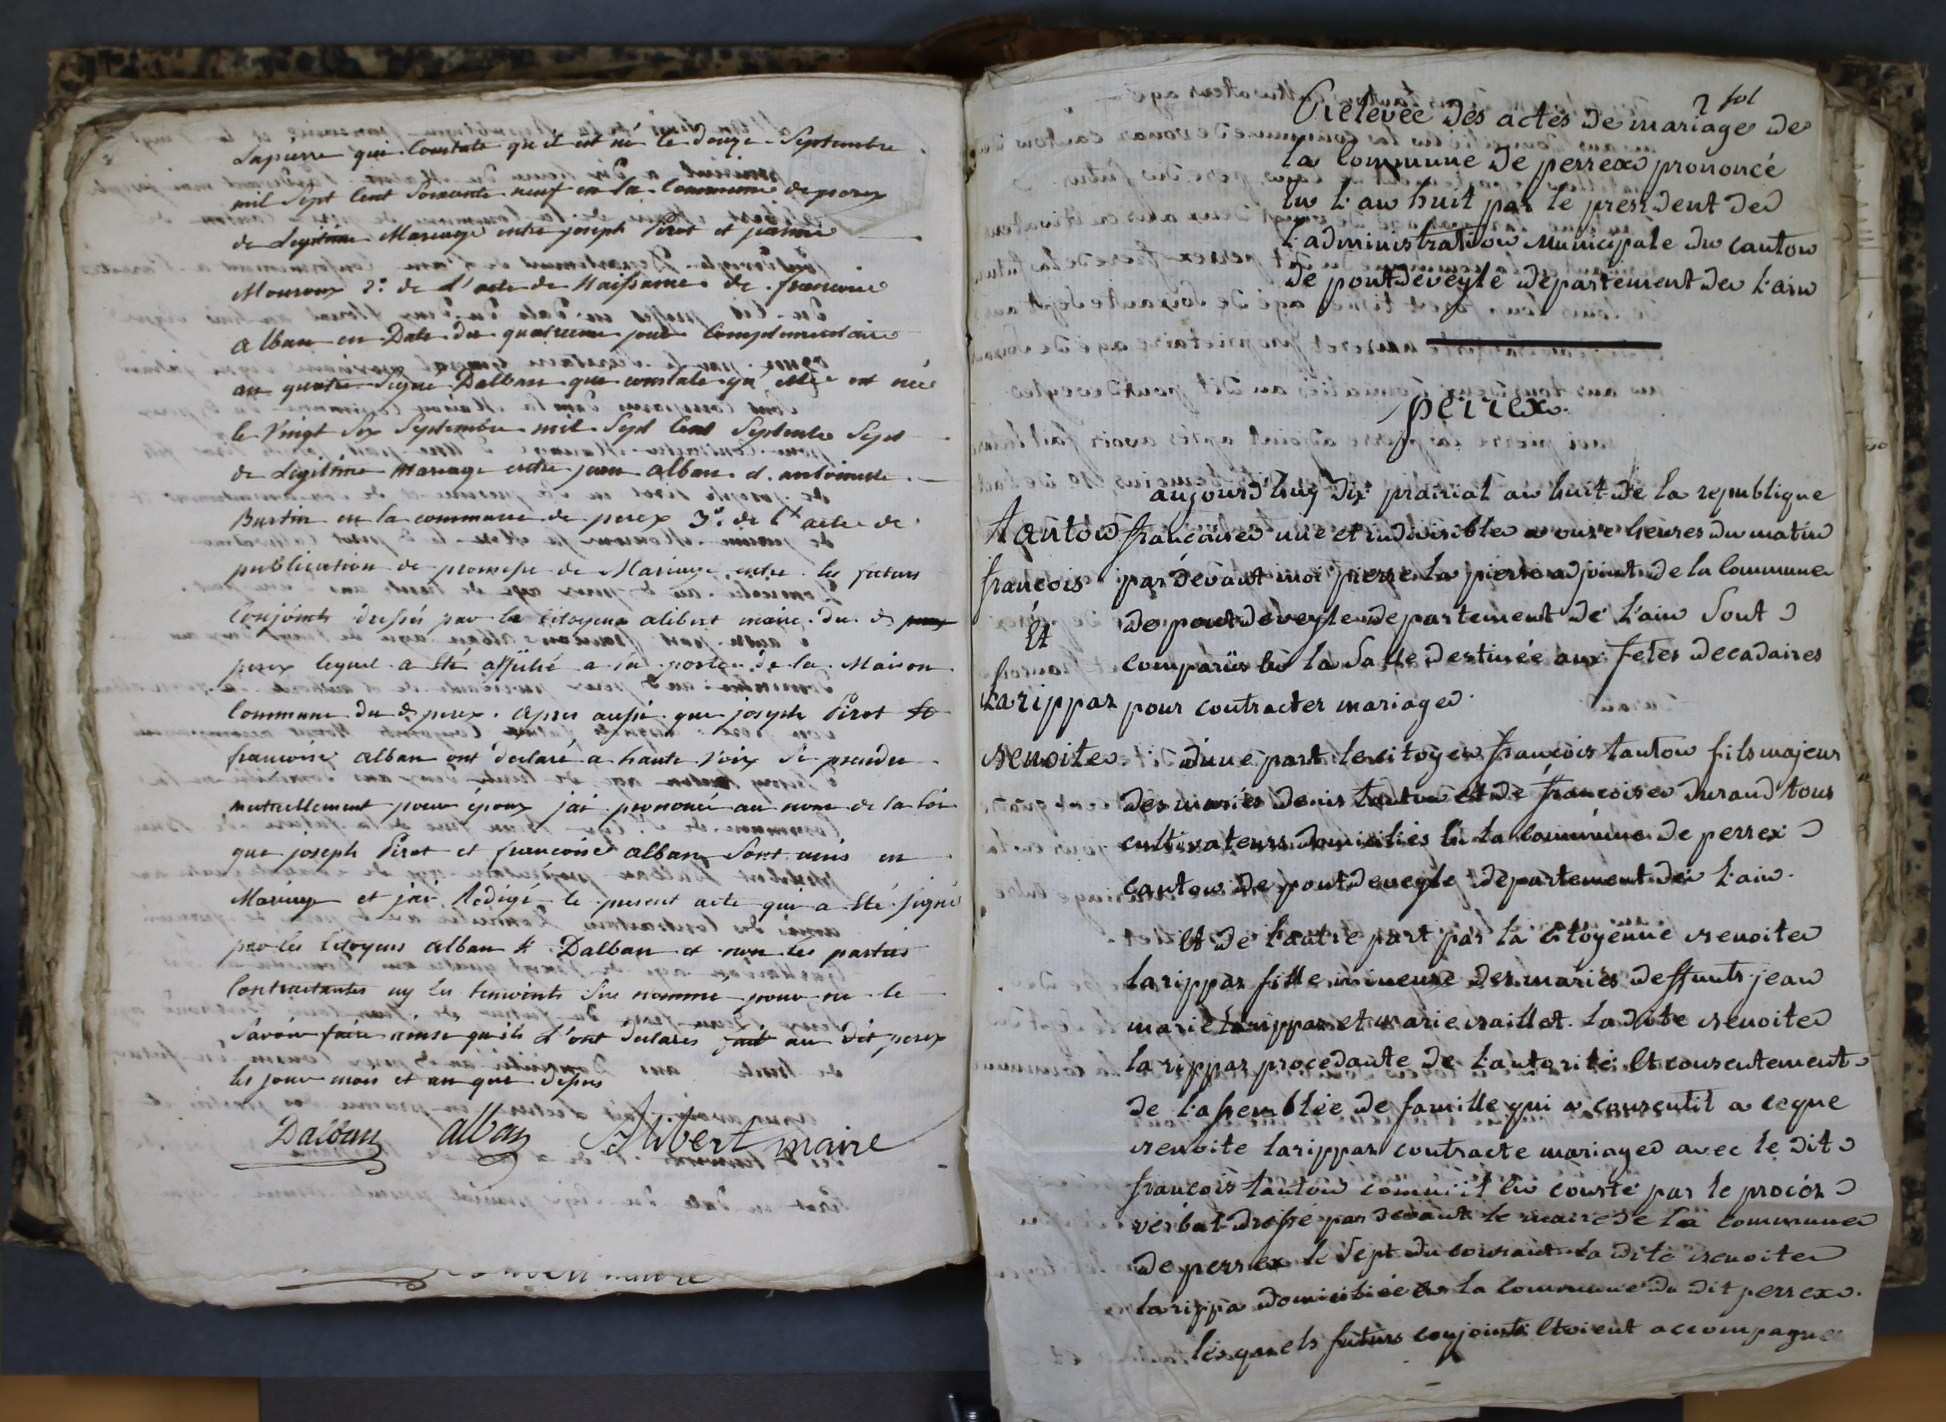 Lapierre qui Constate qu'il est né le douze Septembre
mil Sept Cent Soixante neuf en la Commune de perex
de Legitime Mariage entre joseph Pirot et jeanne
Mouroux 2º. de l'acte de Naissance de francoise
alban en Date du quatrieme jour Complementaire
an quatre Signe Dalban que constate qu'elle est née
le Vingt Six Septembre mil Sept Cent Septente Sept
de Legitime Mariage entre jean alban et antoinette
Burtin en la commune de perex 3º. de l'acte de
publication de promesse de Mariage entre les futurs
Conjoints dressés par le Citoyen alibert maire du d.
perex lequel a Eté affiché a la porte de la Maison
Commune du d perex. apres aussi que joseph Pirot et
francoise alban ont declaré a haute voix Se prendre
mutuellement pour époux j'ai prononcé au nom de la loi
que joseph Pirot et francoise alban Sont unis en
Mariage et j'ai Redigé le present acte qui a Eté Signé
par les Citoyens alban et Dalban et non les parties
Contractantes ny les temoints Sus nommé pour ne le
Savoir faire ainsi qu'ils L'ont declarés fait au dit perex
les jour mois et an que dessus
Dalban alban Alibert maire
maire
2 fol
Relevée des actes de mariage de
la Commune de perrex prononcé
En l'an huit par le president de
L'administration Municipale du canton
de pontdeveyle departement de L'ain
perrex.
aujourd'huy dix prairial an huit de la republique
tanton francaise une et indivisible a onze heures du matin
francois par devant moi pierre la pierre adjoint de la Commune
Et de pontdeveyle departement de L'ain Sont
comparüs En la Salle destinée aux fetes decadaires
Larippaz pour contracter mariage.
Benoite d'une part le citoyen francois tanton fils majeur
des mariés denis tanton et de francoise durand tous
cultivateurs domiciliés En la Commune de perrex
canton de pontdeveyle departement de L'ain.
Et de L'autre part par la Citoyenne Benoite
larippaz fille mineure des mariés deffunts jean
marie Larippaz et marie vaillet. La dite Benoite
larippaz procedante de L'autorité Et consentement
de L'assemblée de famille qui a consentit a ceque
Benoite larippaz contracte mariage avec le dit
francois tanton comme il En conste par le procéz
verbal dressé par devant le maire de la commune
de perrex le Sept du courant la dite Benoite
larippa domiciliée En la Commune du dit perrex.
lesquels futurs conjoints Etoient accompagné